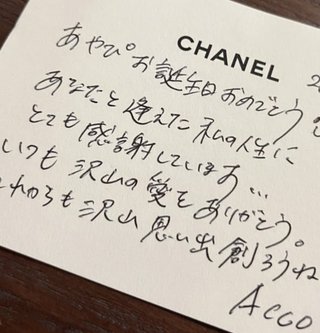 CHANEL
あやぴ お誕生日おめでとう
あなたと逢えた 私の人生に
とても感謝しています…
いつも沢山の愛をありがとう。
これからも沢山思い出創ろうね
Acco